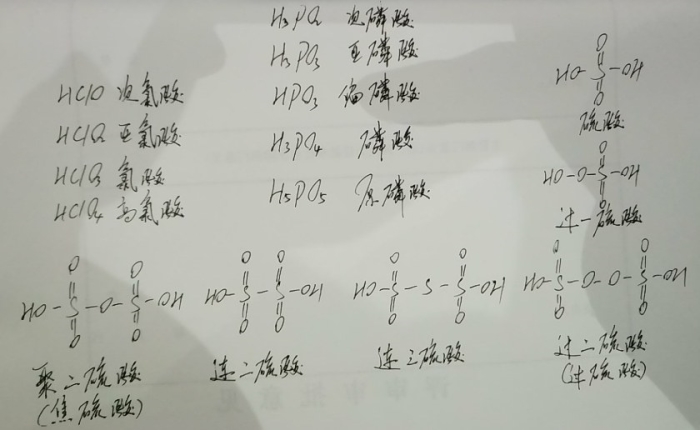 HClO 次氯酸
HClO2 亚氯酸
HClO3 氯酸
HClO4 高氯酸
H3PO2 次磷酸
H3PO3 亚磷酸
HPO3 偏磷酸
H3PO4 磷酸
H5PO5 原磷酸
O
HO-S-OH
O
硫酸
O
HO-O-S-OH
O
过一硫酸
O O
HO-S-O-S-OH
O O
聚二硫酸
(焦硫酸)
O O
HO-S-S-OH
O O
连二硫酸
O O
HO-S-S-S-OH
O O
连三硫酸
O O
HO-S-O-O-S-OH
O O
过二硫酸
(过硫酸)